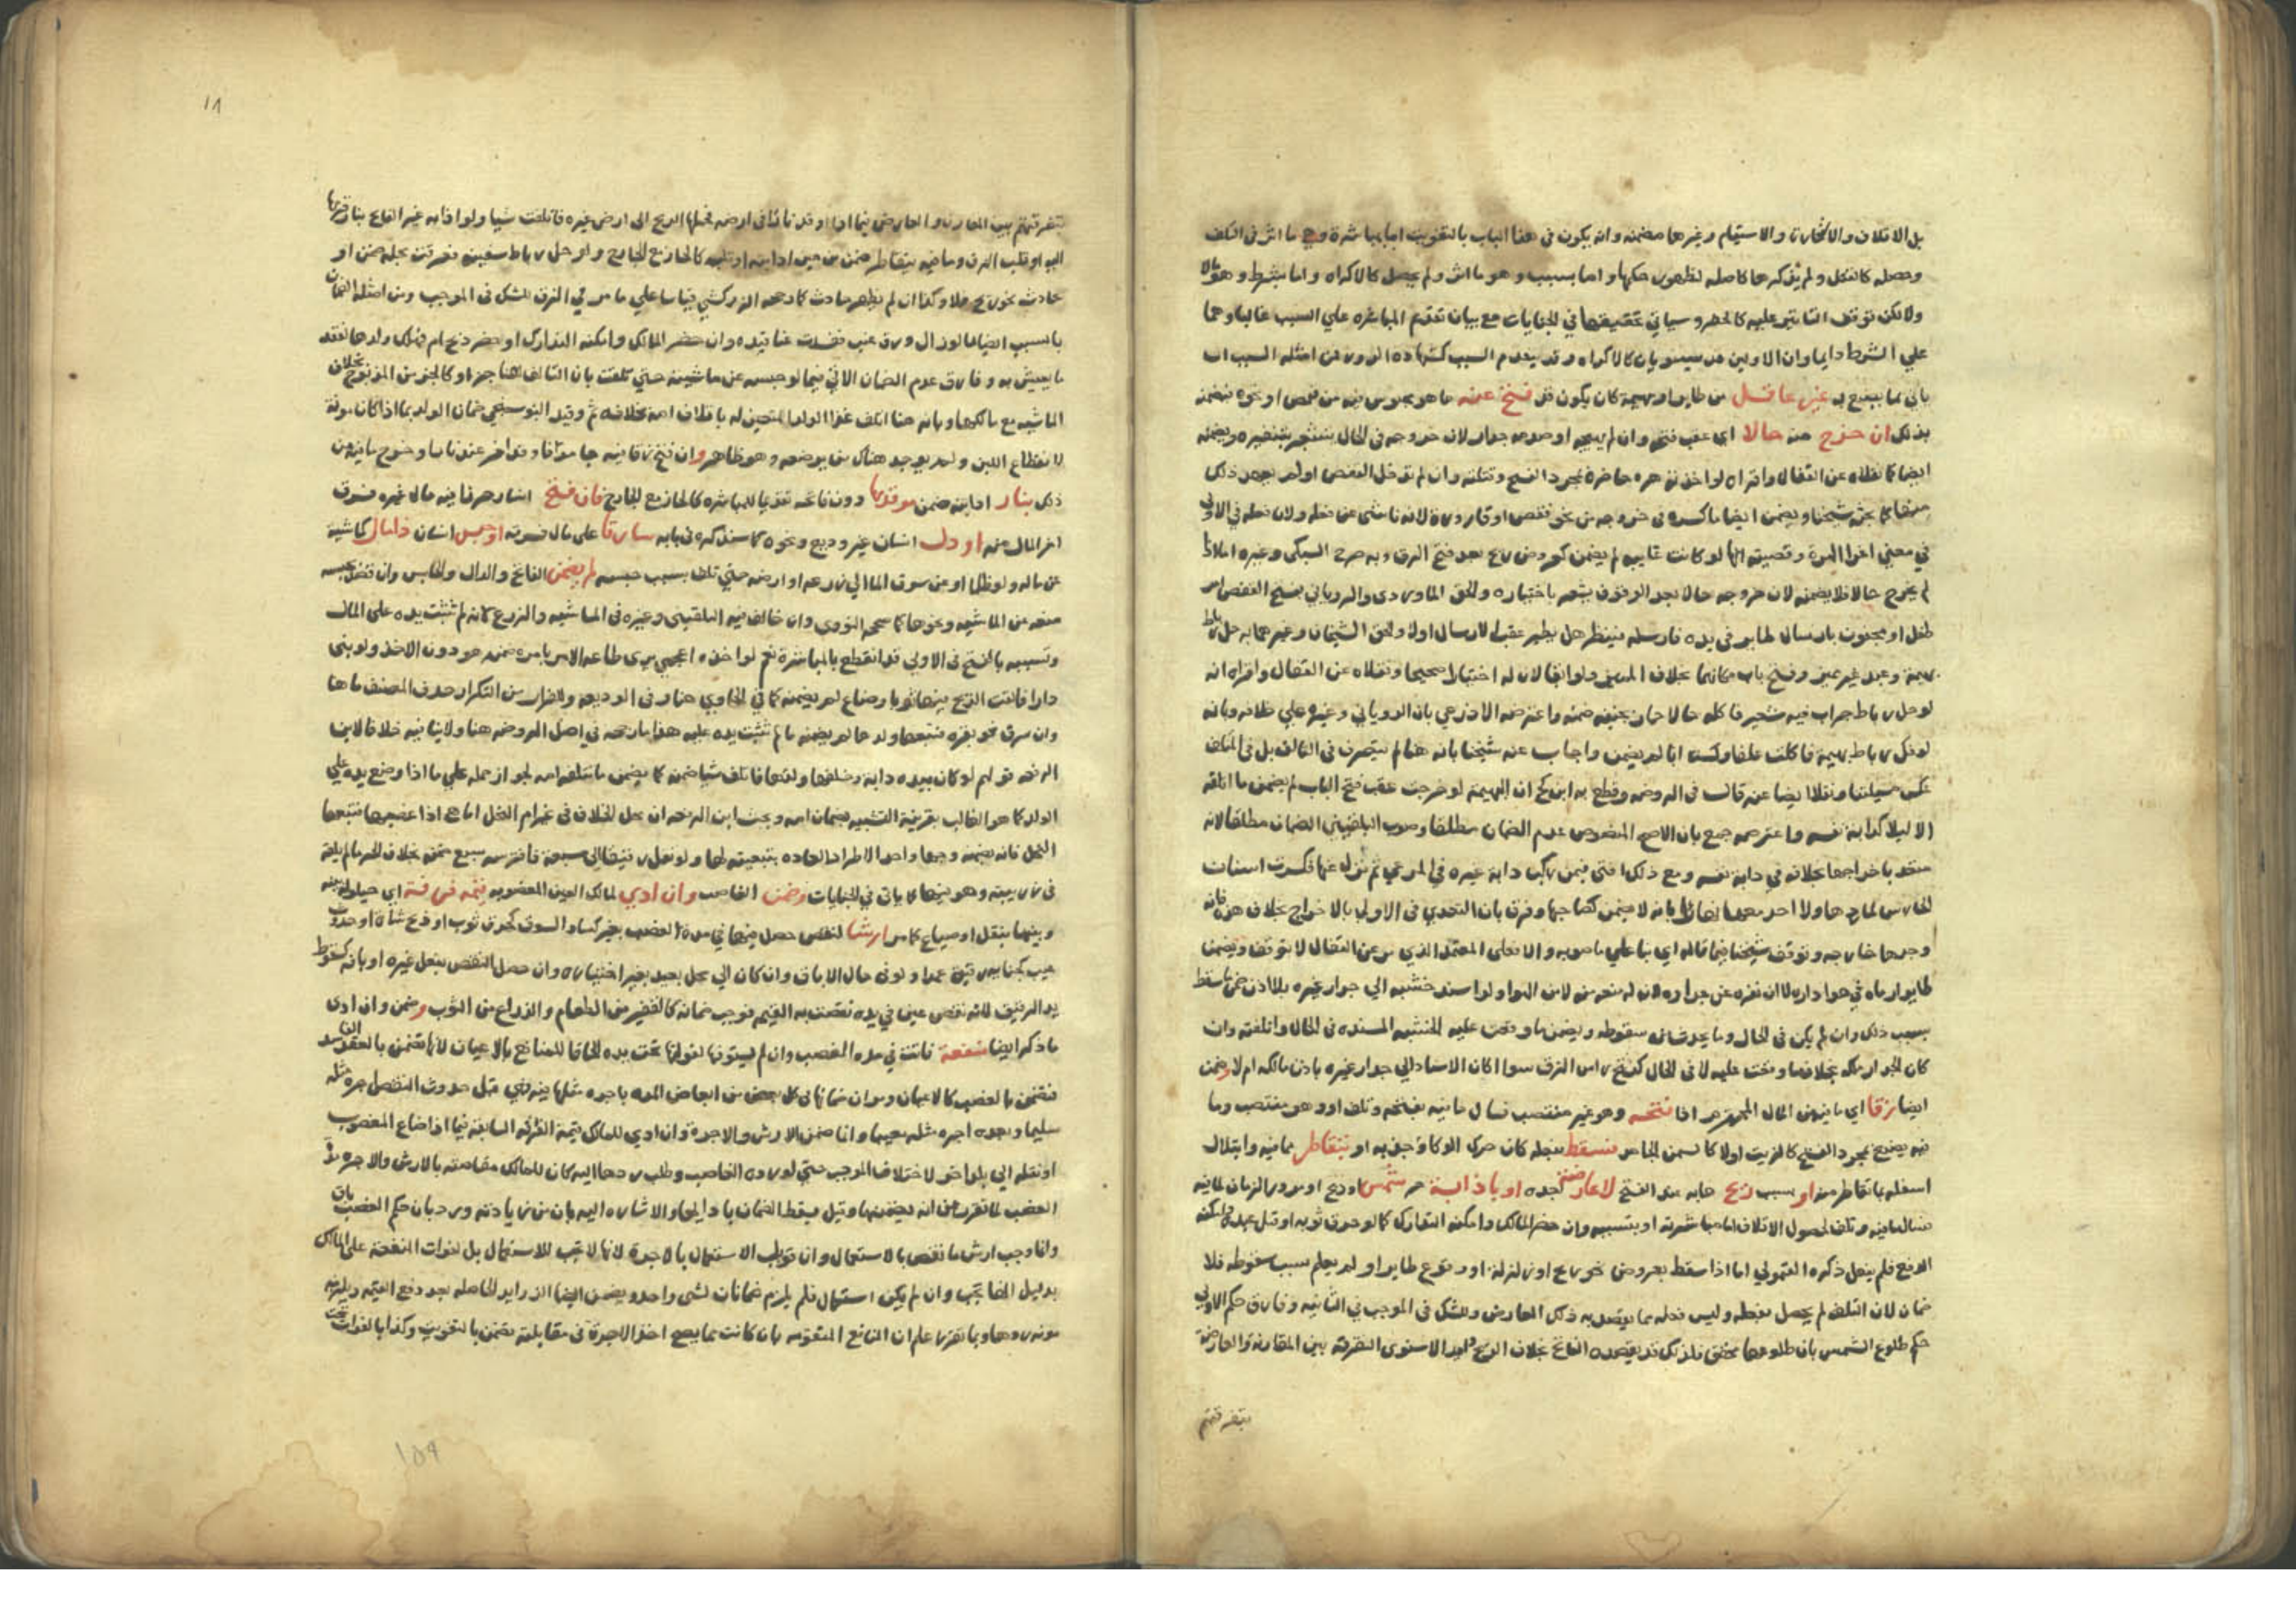 بل الاتلاف والاستيام وغيرها مضمنه وانه يكون في هذا الباب بالتفويت اما بمباشرة وهي ما اثر في التلف
وحصله كالقتل ولم يذكرها كاصله لظهور حكمها واما بسبب وهو ما اثر ولم يحصل كالاكراه واما بشرط وهو مالا
ولكن توقف التاثير عليه كالحفر وسياتي تحقيقها في الجنايات مع بيان تقديم المباشرة علي السبب غالبا وهما
علي الشرط دايما وان الاولين قد يستويان كالاكراه وقد يقدم السبب كشهادة الزور ومن امثلة السبب ان
ياتي بما يضيع به غير عاقل من طاير او بهيمة كان يكون قد فتح عنه ما هو محبوس فيه من قفص او نحوه فيضمنه
بذلك ان خرج منه حالا اي عقب فتحه وان لم يهيجه او صدمه جدار لان خروجه في الحال يشعر بتنفيره ويضمنه
ايضا كما نقلاه عن القفال واقراه لو اخذته هرة حاضرة بمجرد الفتح وقتلته وان لم تدخل القفص اولم يعهد ذلك
منها كما بحثه شيخنا ويضمن ايضا ما كسره في خروجه من نحو قفص او قارورة لانه ناشي عن فعله ولان فعله في الاولي
في معني اغرا الهرة وقضيته انها لو كانت غايبه لم يضمن كعروض ريح بعد فتح الزق وبه صرح السبكي وغيره اما اذا
لم يخرج حالا فلا يضمنه لان خروجه حالا بعد الوقوف يشعر باختياره والحق الماوردي والروياني بفتح القفص امر
طفل او مجنون بارسال طاير في يده فارسله فينظر هل يطير عقب الارسال اولا والحق الشيخان وغيرهما به حل رباط
بهيمة وعبد غير مميز وفتح باب مكانهما بخلاف المميز ولو ابقا لان له اختيارا صحيحا ونقلاه عن القفال واقراه انه
لو حل رباط جراب فيه شعير فاكله حالا حمار بجنبه ضمنه واعترضه الاذرعي بان الروياني وغيره علي خلافه وبانه
لو فك رباط بهيمة فاكلت علفا وكسرت انا لم يضمن واجاب عنه شيخنا بانه هنا لم يتصرف في التالف بل في المتلف
عكس مسيلتنا ونقلا ايضا عنه قالت في الروضه وقطع به ابن كج ان البهيمة لو خرجت عقب فتح الباب لم يضمن ما اتلفته
الا ليلا كدابة نفسه واعترضه جمع بان الاصح المنصوص عدم الضمان مطلقا وصوب البلقيني الضمان مطلقا لانه
متعد باخراجها بخلافه في دابة نفسه ومع ذلك افتي فيمن ركب دابة غيره في المرعي ثم نزل عنها فكسرت اسنان
الحارس لما رجها ولا احد معها انهارا بانه لا يضمن كصاحبها وفرق بان التعدي في الاولي بالاخراج بخلاف هذه فانه
وجدها خارجه وتوقف شيخنا فيما قاله اي بنا علي ما صوبه والا فعلي المعتمد الذي مر عن القفال لا توقف ويضمن
طايرا رماه في هوا داره لا ان نفره عن جداره لان له منعه منه لا من الهوا ولو اسند خشبه الي جدار غيره بلا اذن ضمن ما سقط
بسبب ذلك وان لم يكن في الحال وما يحدث من سقوطه ويضمن ما وقعت عليه الخشبه المسنده في الحال واتلفته وان
كان الجدار ملكه بخلاف ما وقعت عليه لا في الحال كفتح راس الزق سوا اكان الاسناد الي جدار غيره باذن مالكه ام لا وضمن
ايضا زقا اي ما فيه من المال المحترم اذا فتحه وهو غير منتصب فسال ما فيه بفتحه وتلف او وهو منتصب وما
فيه يضيع بمجرد الفتح كالزيت اولا كالسمن الجامد فسقط بفعله كان حرك الوكا وجذبه او بتقاطر ما فيه وابتلال
اسفله بالتقاطر منه او بسبب ريح هابه عند الفتح لا عارضة بعده او باذابة حر شمس كا وريح او مرور الزمان لما فيه
فسال ما فيه وتلف لحصول الاتلاف اما مباشرته او بتسببه وان حضر المالك وامكنه التدارك كما لو حرق ثوبه او قتل عبده وامكنه
الدفع فلم يفعل ذكره القمولي اما اذا سقط بعروض نحو ريح او زلزلة او وقوع طاير او لم يعلم سبب سقوطه فلا
ضمان لان التلف لم يحصل بفعله وليس فعله مما يقصد به ذلك العارض وللشك في الموجب في الثانيه وفارق حكم الاولي
حكم طلوع الشمس بان طلوعها محقق فلذلك قد يقصده الفاتح بخلاف الريح وايد الاسنوي التفرقة بين المقارنة والعارضة
بتفرقتهم
بتفرقتهم بين المقارن والعارض فيما اذا اوقد نارا في ارضه فحملها الريح الي ارض غيره فاتلفت شيا ولو اذابه غير الفاتح بنار قربها
اليه او قلب الزق وما فيه يتقاطر ضمن من حين اذابته او قلبه كالحاز مع الجارح ولو حل رباط سفينه فغرقت بحله ضمن او
بحادث نحو ريح فلا وكذا ان لم يظهر حادث كما رجحه الزركشي قياسا علي ما مر في الزق للشك في الموجب ومن امثلة الضمان
بالسبب ايضا ما لو ازال ورق عنب ففسدت عناقيده وان حضر المالك وامكنه التدارك او حضر ذبح ام فهلك ولدها لفقد
ما يعيش به وفارق عدم الضمان الاتي فيما لو حبسه عن ماشيته حتي تلفت بان التالف هنا جزا وكالجز من المذبوح بخلاف
الماشيه مع مالكها وبانه هنا اتلف غذا الولد المتعين له باتلاف امه بخلافه ثم وقيد البوسنجي ضمان الولد بما اذا كان موته
لانقطاع اللبن ولم يوجد هناك من يرضعه وهو ظاهر وان فتح زقا فيه جامد انا وقد اخر عنده نارا وخرج ما فيه من
ذلك بنار اذابته ضمن موقدها دون فاتحه تقديما للمباشرة كالحاز مع الجارح فان فتح انسان حرزا فيه مال غيره فسرق
اخر المال منه او دل انسان غير وديع ونحوه كما سنذكره في بابه سارقا علي مال فسرقه او حبس انسان ذا مال كماشية
عن ماله ولو ظلما او عن سوق الما الي زرعه او ارضه حتي تلف بسبب حبسه لم يضمن الفاتح والدال والحابس وان قصد بحبسه
منعه عن الماشيه ونحوها كما صححه النووي وان خالف فيه البلقيني وغيره في الماشيه والزرع لانه لم تثبت يده علي المال
وتسببه بالفتح في الاولي قد انقطع بالمباشرة نعم لو اخذه اعجمي يري طاعه الامر بامره ضمنه هو دون الاخذ ولو بني
دارا فالقت الريح فيها ثوبا وضاع لم يضمنه كما في الحاوي هنا وفي الوديعه وللفرار من التكرار حذف المصنف ما هنا
وان سرق نحو بقره فتبعها ولدها لم يضمنه ما لم تثبت يده عليه هذا ما رجحه في اصل الروضه هنا ولا ينافيه خلافا لابن
الرفعه قولهم لو كان بيده دابة وخلفها ولدها فاتلف شيا ضمنه كما يضمن ما تتلفه امه لجواز حمله علي ما اذا وضع يده علي
الولد كما هو الغالب بقرينة التشبيه بضمان امه وبحث ابن الرفعه ان محل الخلاف في غير ام النحل اما هي اذا غصبها فتبعها
النحل فانه يضمنه وجها واحدا لاطراد العادة بتبعيته لها ولو نقل رقيقا الي مسبعه فافترسه سبع ضمنه بخلاف الحر ما لم يلقه
في زريبته وهو فيها كما ياتي في الجنايات وضمن الغاصب وان ادي لمالك العين المغصوبه قيمه فرقة اي حيلولة بينه
وبينها بنقل او ضياع كما مر ارشا لنقص حصل فيها في مدة الغصب بغير كساد السوق كحرق ثوب او ذبح شاة او حدوث
عيب كجنايه رقيق عمدا ولو في حال الاباق وان كان الي محل بعيد بغير اختياره وان حصل النقص بفعل غيره او بافة كسقوط
يد الرقيق لانه نقص عين في يده نقصت به القيمه فوجب ضمانه كالقفيز من الطعام والذراع من الثوب وضمن وان ادي
ما ذكر ايضا منفعة فايتة في مده الغصب وان لم يستوفها لفواتها تحت يده الحاقا للمنافع بالاعيان لانها تضمن بالعقد الفاسد
فتضمن بالغصب كالاعيان ومران ضمانها في كل بعض من ابعاض المده باجره مثلها فيه ففي قبل حدوث النقص اجره مثله
سليما وبعده اجره مثله معيبا وانما ضمن الارش والاجرة وان ادي للمالك قيمة الفرقة السابقة فيما اذا ضاع المغصوب
او نقله الي بلد اخر لاختلاف الموجب حتي لو رده الغاصب وطلب رجعها اليه كان للمالك مقاصته بالارش والاجره مدة
الغصب لما تقرر من انه يضمنها وقيل يسقط الضمان بادايها والاشارة اليه بان من زيادته ورد بان حكم الغصب باق
وانما وجب ارش ما نقص بالاستعمال وان قوبل الاستعمال بالاجرة لانها لا تجب للاستعمال بل لفوات المنفعة علي المالك
بدليل انها تجب وان لم يكن استعمال فلم يلزم ضمانان لشي واحد ويضمن ايضا الزوايد الحاصلة بعد دفع القيمه ويلزمه
مونه ردها وبما تقرر علم ان المنافع المتقومه بان كانت مما يصح اخذ الاجرة في مقابلته تضمن بالتفويت وكذا بالفوات تحت
١٨
١٥٩